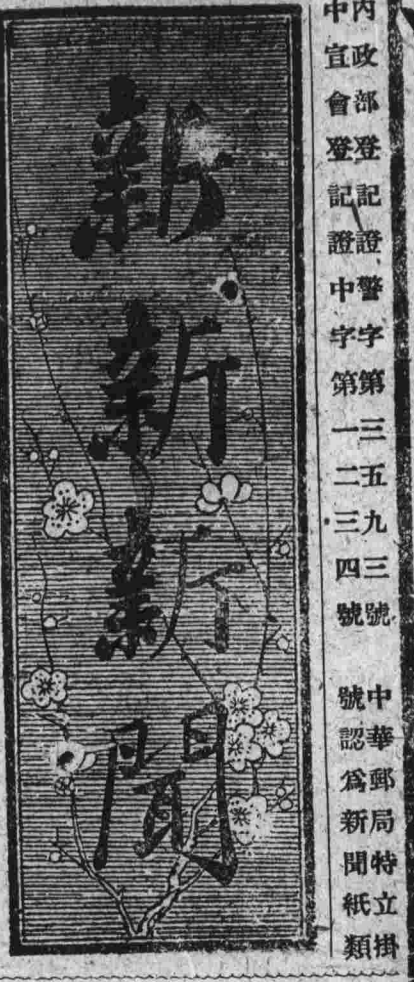 內政部登記證警字第三五九三號 中華郵局特立掛
中宣會登記證中字第一二三四號 號認爲新聞紙類
新新新聞